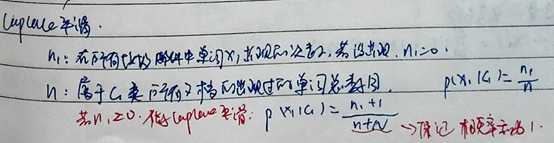 Laplace平滑.
n₁: 在所有垃圾邮件中单词x₁出现的次数. 若没出现, n₁=0.
n: 属于C₁类的所有文档的出现过的单词总数目. p(x₁|C₁)=n₁/n
若n₁=0. 做Laplace平滑: p(x₁|C₁)=(n₁+1)/(n+N) →保证 概率和为1.